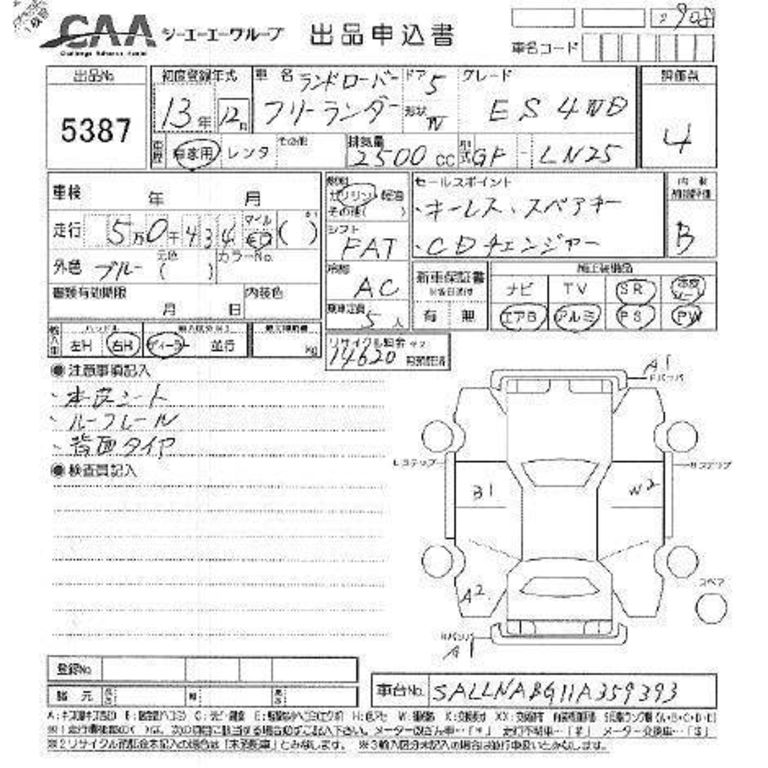 CAA ジーエーエーグループ 出品申込書
車名コード
出品No. 5387
初度登録年式 13年 12月
車名 ランドローバー フリーランダー
ドア 5
形状 W
グレード ES 4WD
評価点 4
車歴 自家用 レンタ その他
排気量 2500 cc
型式 GF - LN25
車検 年 月
走行 5万0千434 マイル km ( )
外色 ブルー 元色 ( ) カラーNo.
書類有効期限 月 日 内装色
燃料 ガソリン 軽油 その他( )
シフト FAT
冷房 AC
乗車定員 5人
セールスポイント
・キーレス、スペアキー
・CDチェンジャー
B
新車保証書 有 無
ナビ TV SR 本皮シート
エアB アルミ PS PW
輸入車 ハンドル 左H 右H
ディーラー 並行
kg
リサイクル預託金 ※2 14620
●注意事項記入
、本皮シート
、ルーフレール
、背面タイヤ
●検査員記入
A1 Fバンパ
Lステップ
Rステップ
B1
W2
A2
スペア
Rバンパ A1
登録No.
諸元 長 幅 高
車台No. SALLNABG11A359393
※2リサイクル預託金未記入の場合は「未預託車」とみなします。 ※3輸入区分未記入の場合は並行車扱いとみなします。